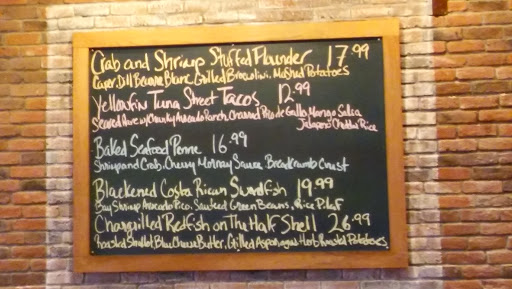 Crab and Shrimp Stuffed Flounder 17.99
Caper Dill Beurre Blanc, Grilled Broccolini, Mashed Potatoes
Yellowfin Tuna Street Tacos 12.99
Seared Rare w/ Chunky Avocado Ranch, Charred Pico de Gallo, Mango Salsa
Jalapeno Cheddar Rice
Baked Seafood Penne 16.99
Shrimp and Crab, Cheesy Mornay Sauce, Breadcrumb Crust
Blackened Costa Rican Swordfish 19.99
Bay Shrimp Avocado Pico, Sauteed Green Beans, Rice Pilaf
Chargrilled Redfish on The Half Shell 26.99
Roasted Shallot Blue Cheese Butter, Grilled Asparagus, Herb Roasted Potatoes